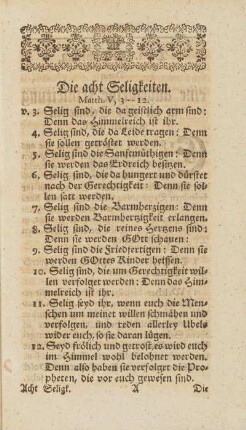 Die acht Seligkeiten.
Matth. V, 3--12.
v. 3. Selig sind, die da geistlich arm sind:
Denn das Himmelreich ist ihr.
4. Selig sind, die da Leide tragen: Denn
sie sollen getröstet werden.
5. Selig sind die Sanftmüthigen: Denn
sie werden das Erdreich besitzen.
6. Selig sind, die da hungert und dürstet
nach der Gerechtigkeit: Denn sie sol-
len satt werden.
7. Selig sind die Barmhertzigen: Denn
sie werden Barmhertzigkeit erlangen.
8. Selig sind, die reines Hertzens sind:
Denn sie werden GOtt schauen:
9. Selig sind die Friedfertigen: Denn sie
werden GOttes Kinder heissen.
10. Selig sind, die um Gerechtigkeit wil-
len verfolget werden: Denn das Him-
melreich ist ihr.
11. Selig seyd ihr, wenn euch die Men-
schen um meinet willen schmähen und
verfolgen, und reden allerley Ubels
wider euch, so sie daran lügen.
12. Seyd frölich und getrost, es wird euch
im Himmel wohl belohnet werden.
Denn also haben sie verfolget die Pro-
pheten, die vor euch gewesen sind.
Acht Seligk. A Die